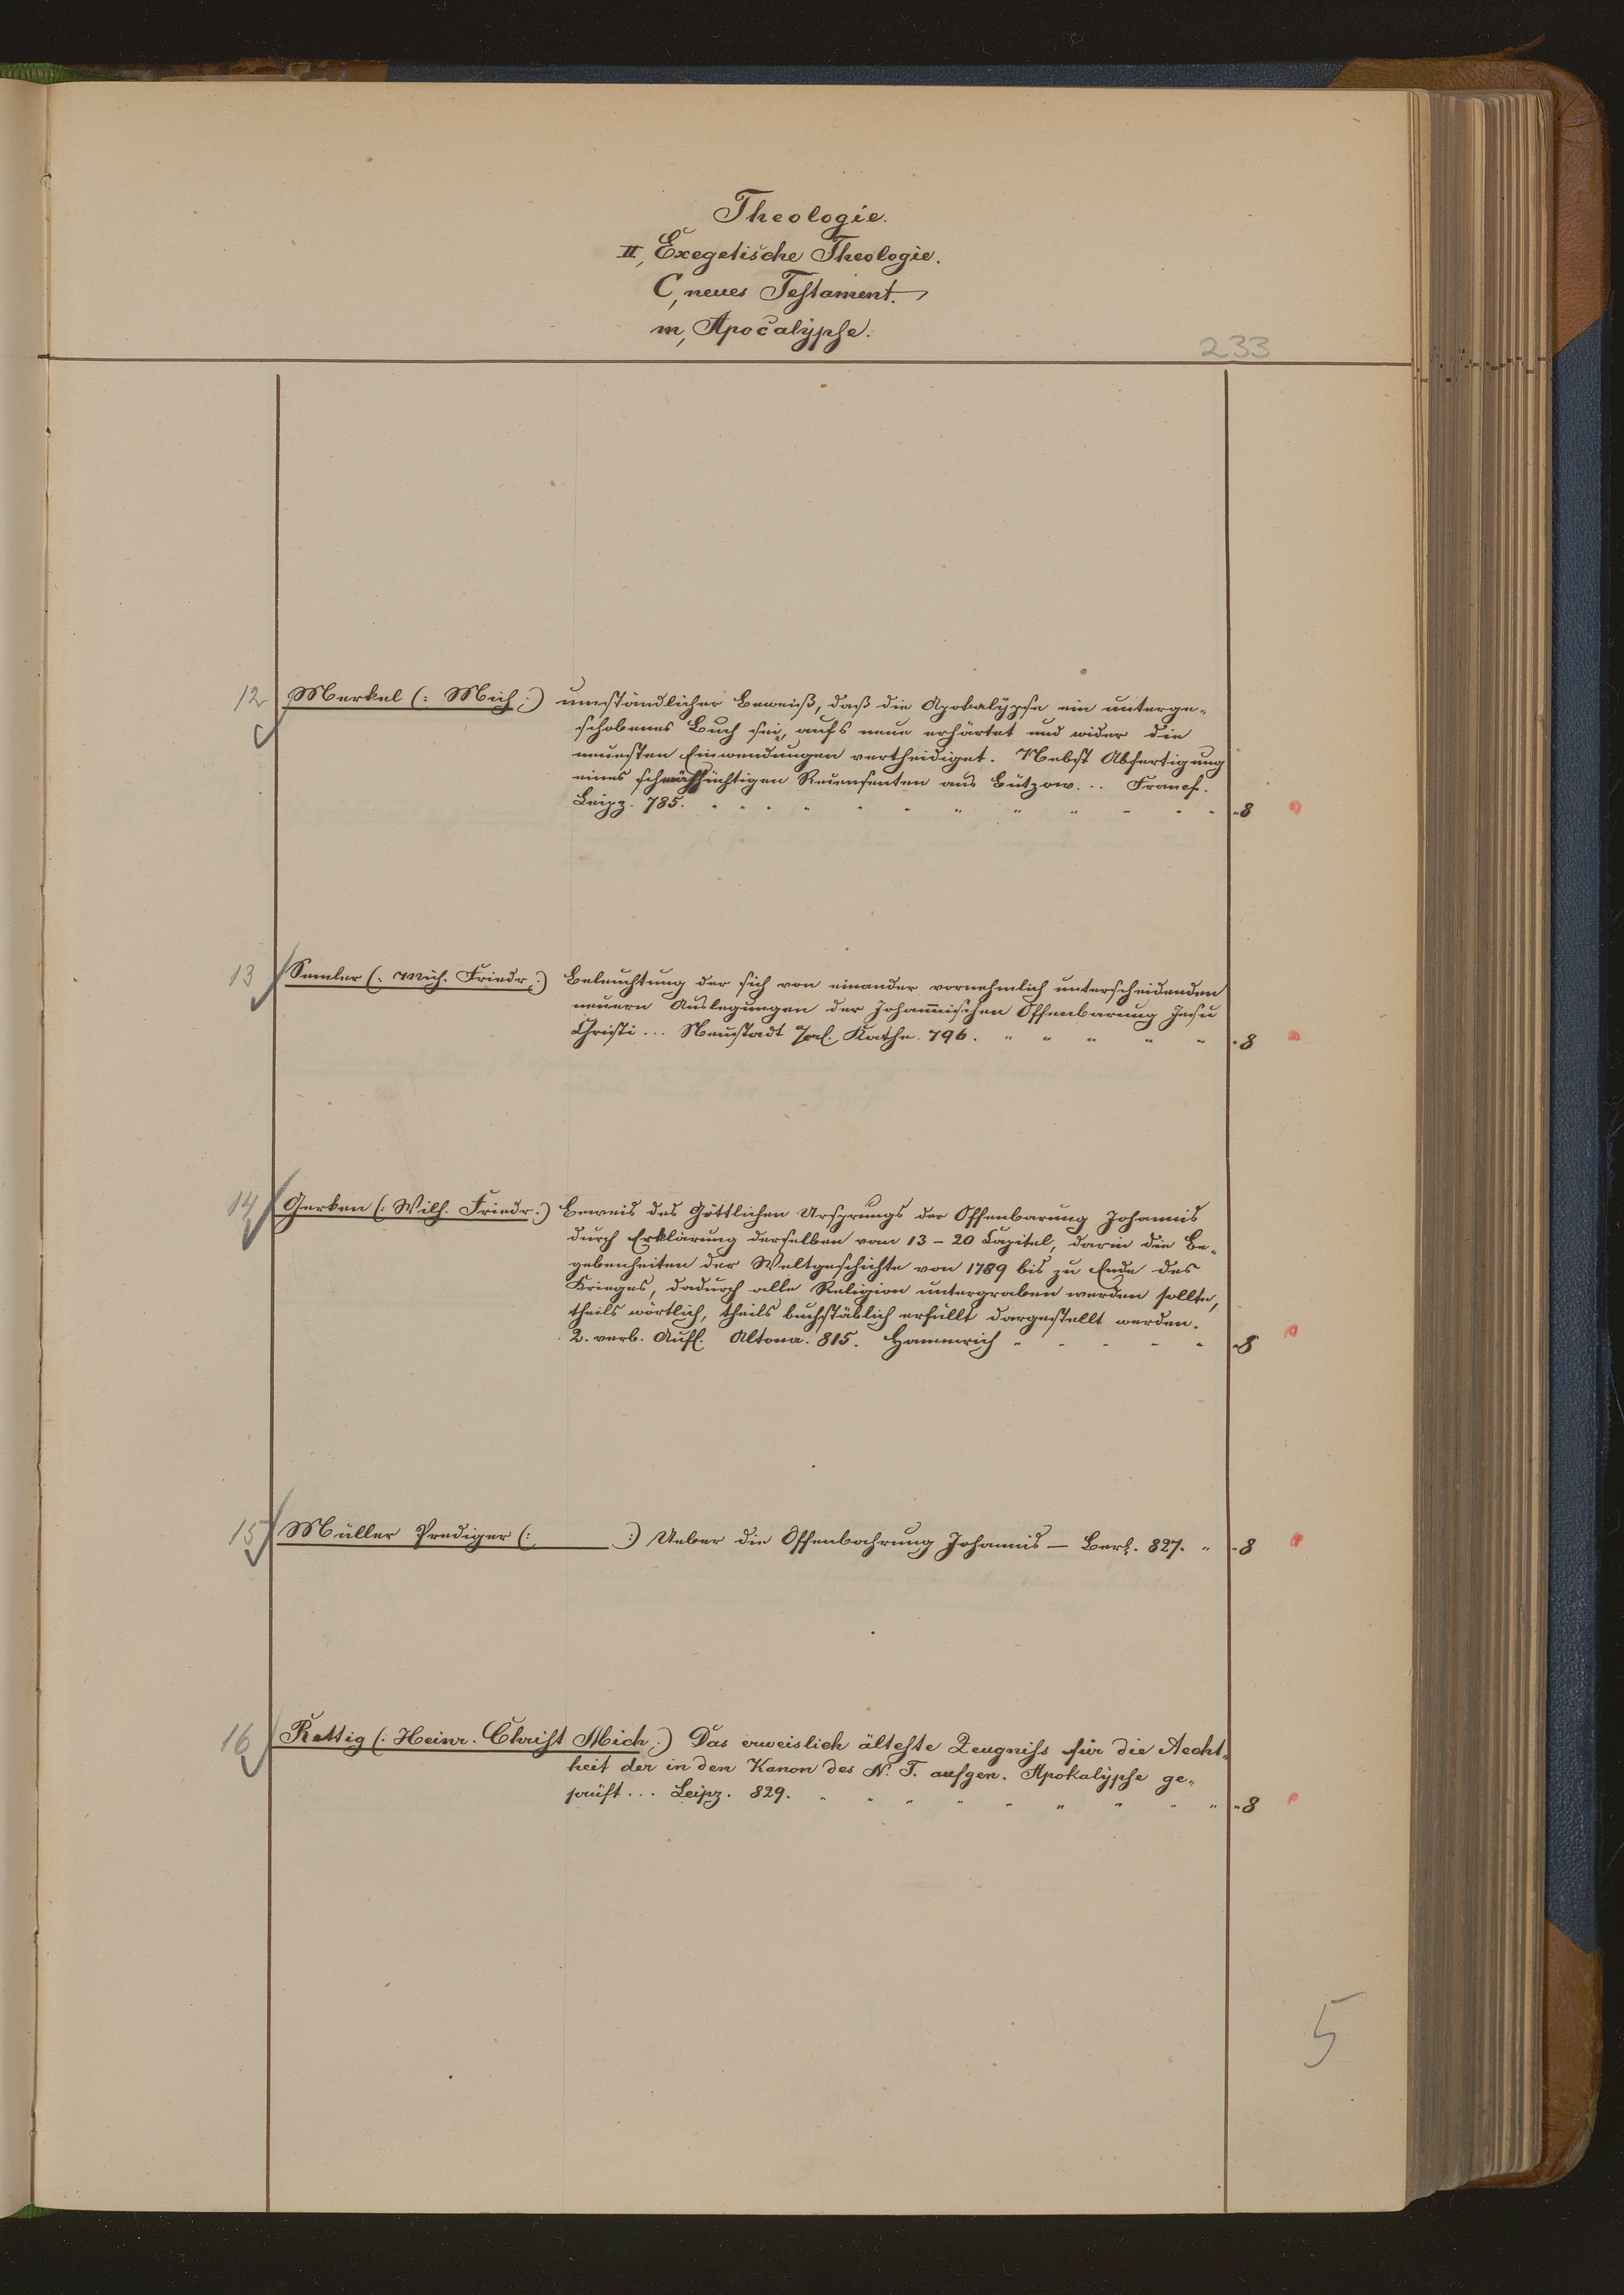 Theologie.
II, Exegetische Theologie.
C, neues Testament.
m, Apocalypse.
233
12 Merkel (: Mich :) umständlicher Beweiß, daß die Apokalypse ein unterge-
schobenes Buch sei, aufs neue erhärtet und wider die
neuesten Einwendungen vertheidiget. Nebst Abfertigung
eines schmähsüchtigen Recensenten aus Bützow... Francf.
Leipz. 785. " " " " " " " " " " " " "8
13 Semler (: Mich. Friedr. :) Beleuchtung der sich von einander vornehmlich unterscheidenden
neuern Auslegungen der Johannischen Offenbarung Jesu
Christi... Neustadt Kathe. 796. " " " " " "8
14 Gerken (: Wilh. Friedr. :) Beweis des Göttlichen Ursprungs der Offenbarung Johannis
durch Erklärung derselben vom 13-20 Capitel, darin die Be-
gebenheiten der Weltgeschichte von 1789 bis zu Ende des
Krieges, dadurch alle Religion untergraben werden sollte,
theils wörtlich, theils buchstäblich erfüllt dargestellt werden.
2. verb. Aufl. Altona. 815. Hammrich " " " " " "8
15 Müller Prediger (: :) Ueber die Offenbahrung Johannis — Berl. 827. " "8
16 Rettig (: Heinr. Christ Mich :) Das erweislich älteste Zeugniss für die Aecht-
heit der in den Kanon des N. T. aufgen. Apokalypse ge-
prüft... Leipz. 829. " " " " " " " " " "8
5